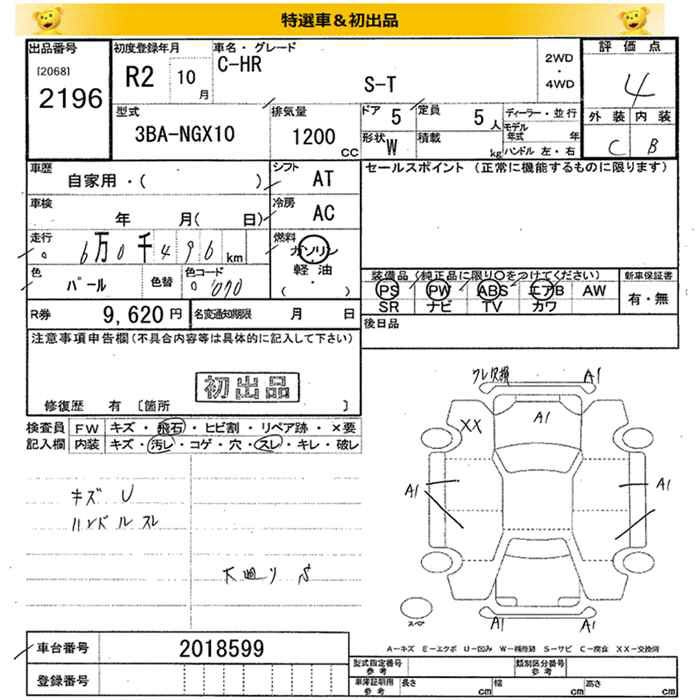 特選車＆初出品
出品番号
[2068]
2196
初度登録年月
R2 10月
車名・グレード
C-HR
S-T
2WD
・
4WD
評価点
4
型式
3BA-NGX10
排気量
1200 CC
ドア 5
定員 5人
形状 W
積載 kg
ディーラー・並行
モデル年式 年
ハンドル 左・右
外装 内装
C B
車歴
自家用・( )
シフト
AT
セールスポイント (正常に機能するものに限ります)
車検
年 月( 日)
冷房
AC
走行
6万0千496 km
燃料
ガソリン
軽油
( ・ )
色
パール
色替
色コード
070
装備品 (純正品に限り〇をつけてください)
新車保証書
PS PW ABS エアB AW
SR ナビ TV カワ
有・無
R券 9,620円
名変通知期限 月 日
後日品
注意事項申告欄 (不具合内容等は具体的に記入して下さい)
初出品
修復歴 有 [箇所 ]
検査員 FW キズ・飛石・ヒビ割・リペア跡・×要
記入欄 内装 キズ・汚レ・コゲ・穴・スレ・キレ・破レ
キズ U
ハンドル スレ
下廻り S
A1
A1
XX
A1
A1
A1
A1
スペア
A-キズ E-エクボ U-凹み W-補修跡 S-サビ C-腐食 XX-交換済
車台番号 2018599
登録番号
型式指定番号 参考
類別区分番号 参考
車庫証明用 参考
長さ cm 幅 cm 高さ cm